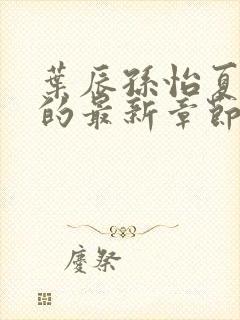 葉辰孫怡夏
的最新章節
慶祭